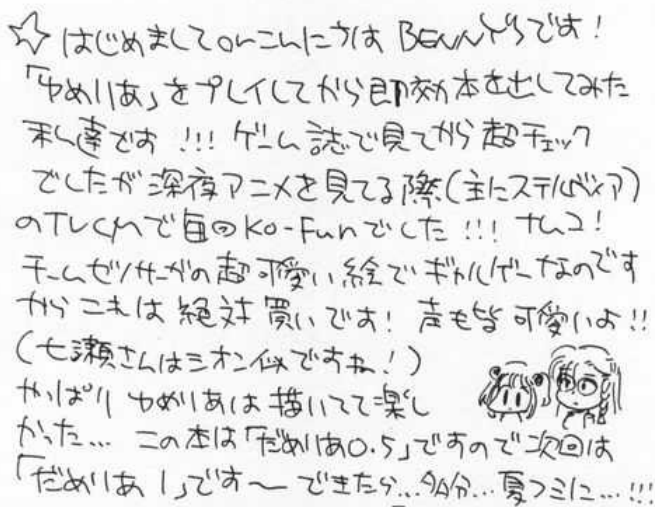 ☆はじめまして or こんにちは BENNY'Sです!
「ゆめりあ」をプレイしてから即効本を出してみた
私達です !!! ゲーム誌で見てから超チェック
でしたが深夜アニメを見てる際(主にステルヴィア)
のTVCMで毎回Ko-Funでした !!! ナムコ!
チームゼノサーガの超可愛い絵でギャルゲーなのです
からこれは絶対買いです! 声も皆可愛いよ !!
(七瀬さんはシオン似ですね!)
やっぱりゆめりあは描いてて楽し
かった… この本は「だめりあ0.5」ですので次回は
「だめりあ1」です〜 できたら…多分…夏コミに…!!!